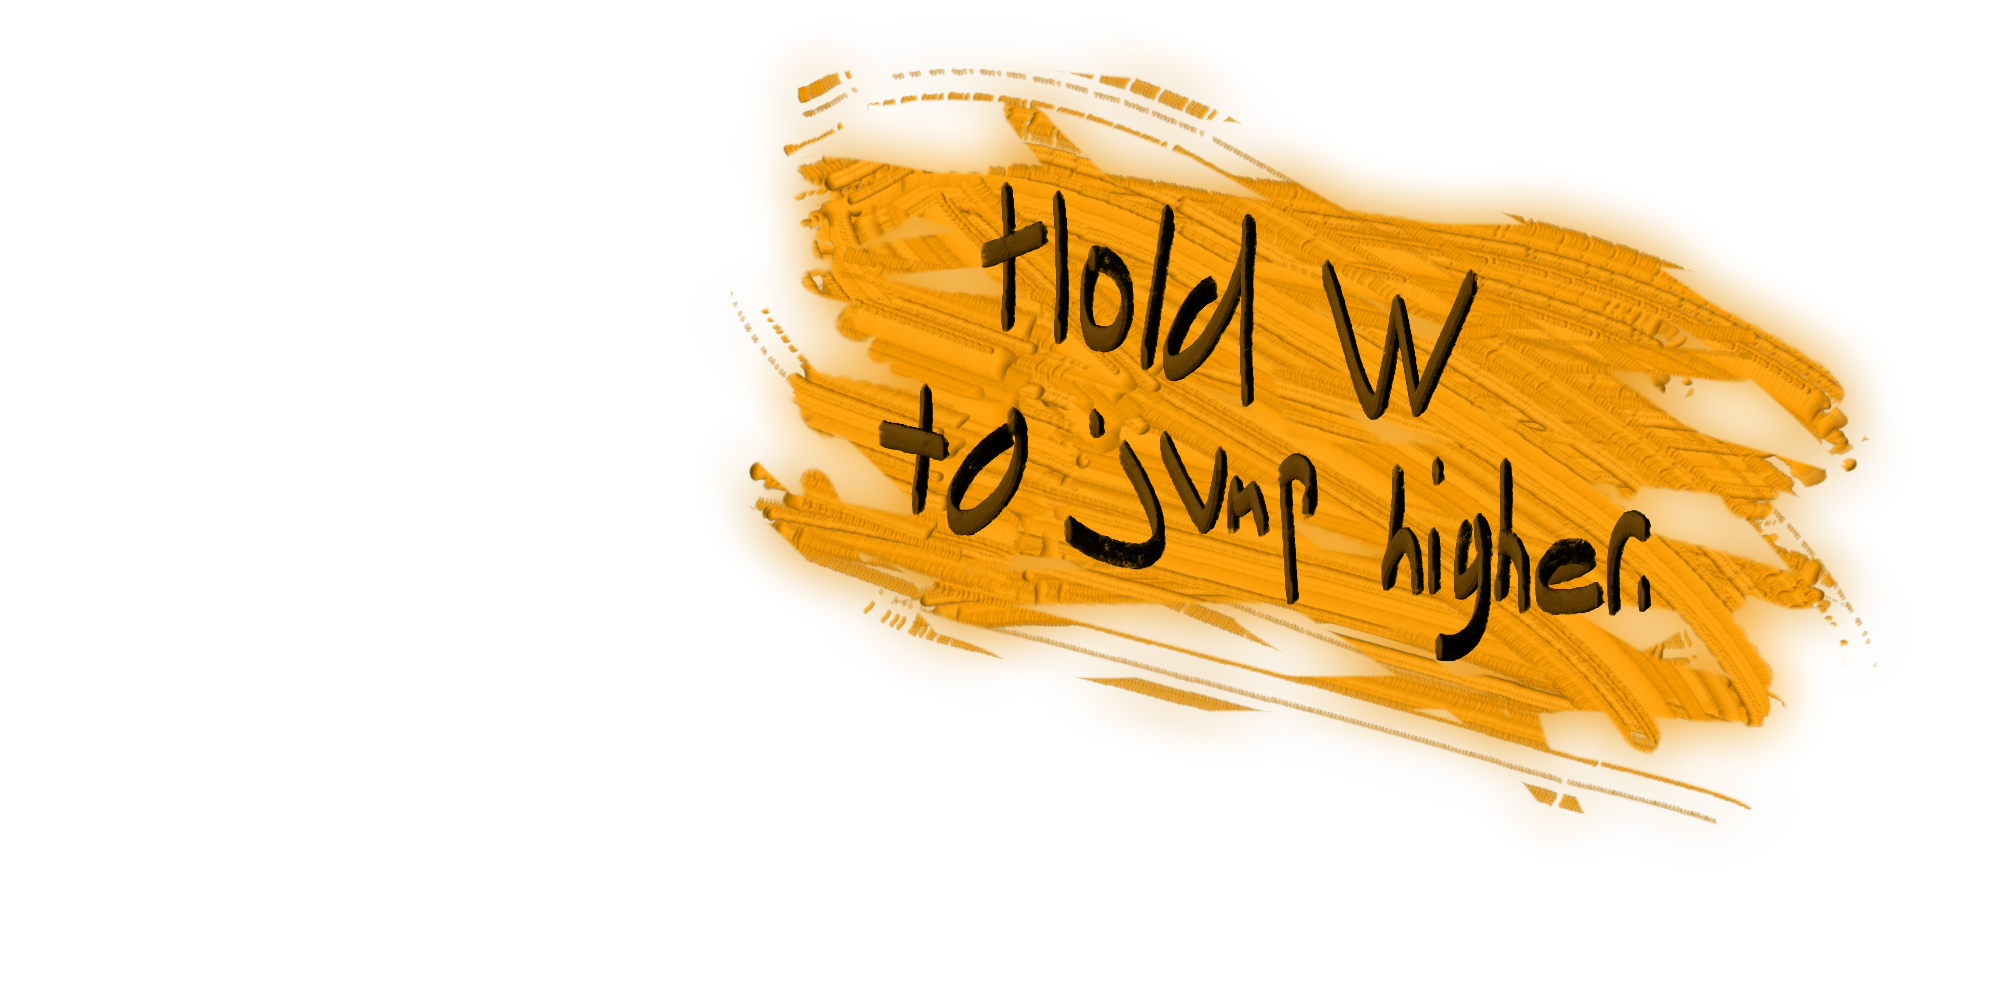 Hold W
to jump higher.